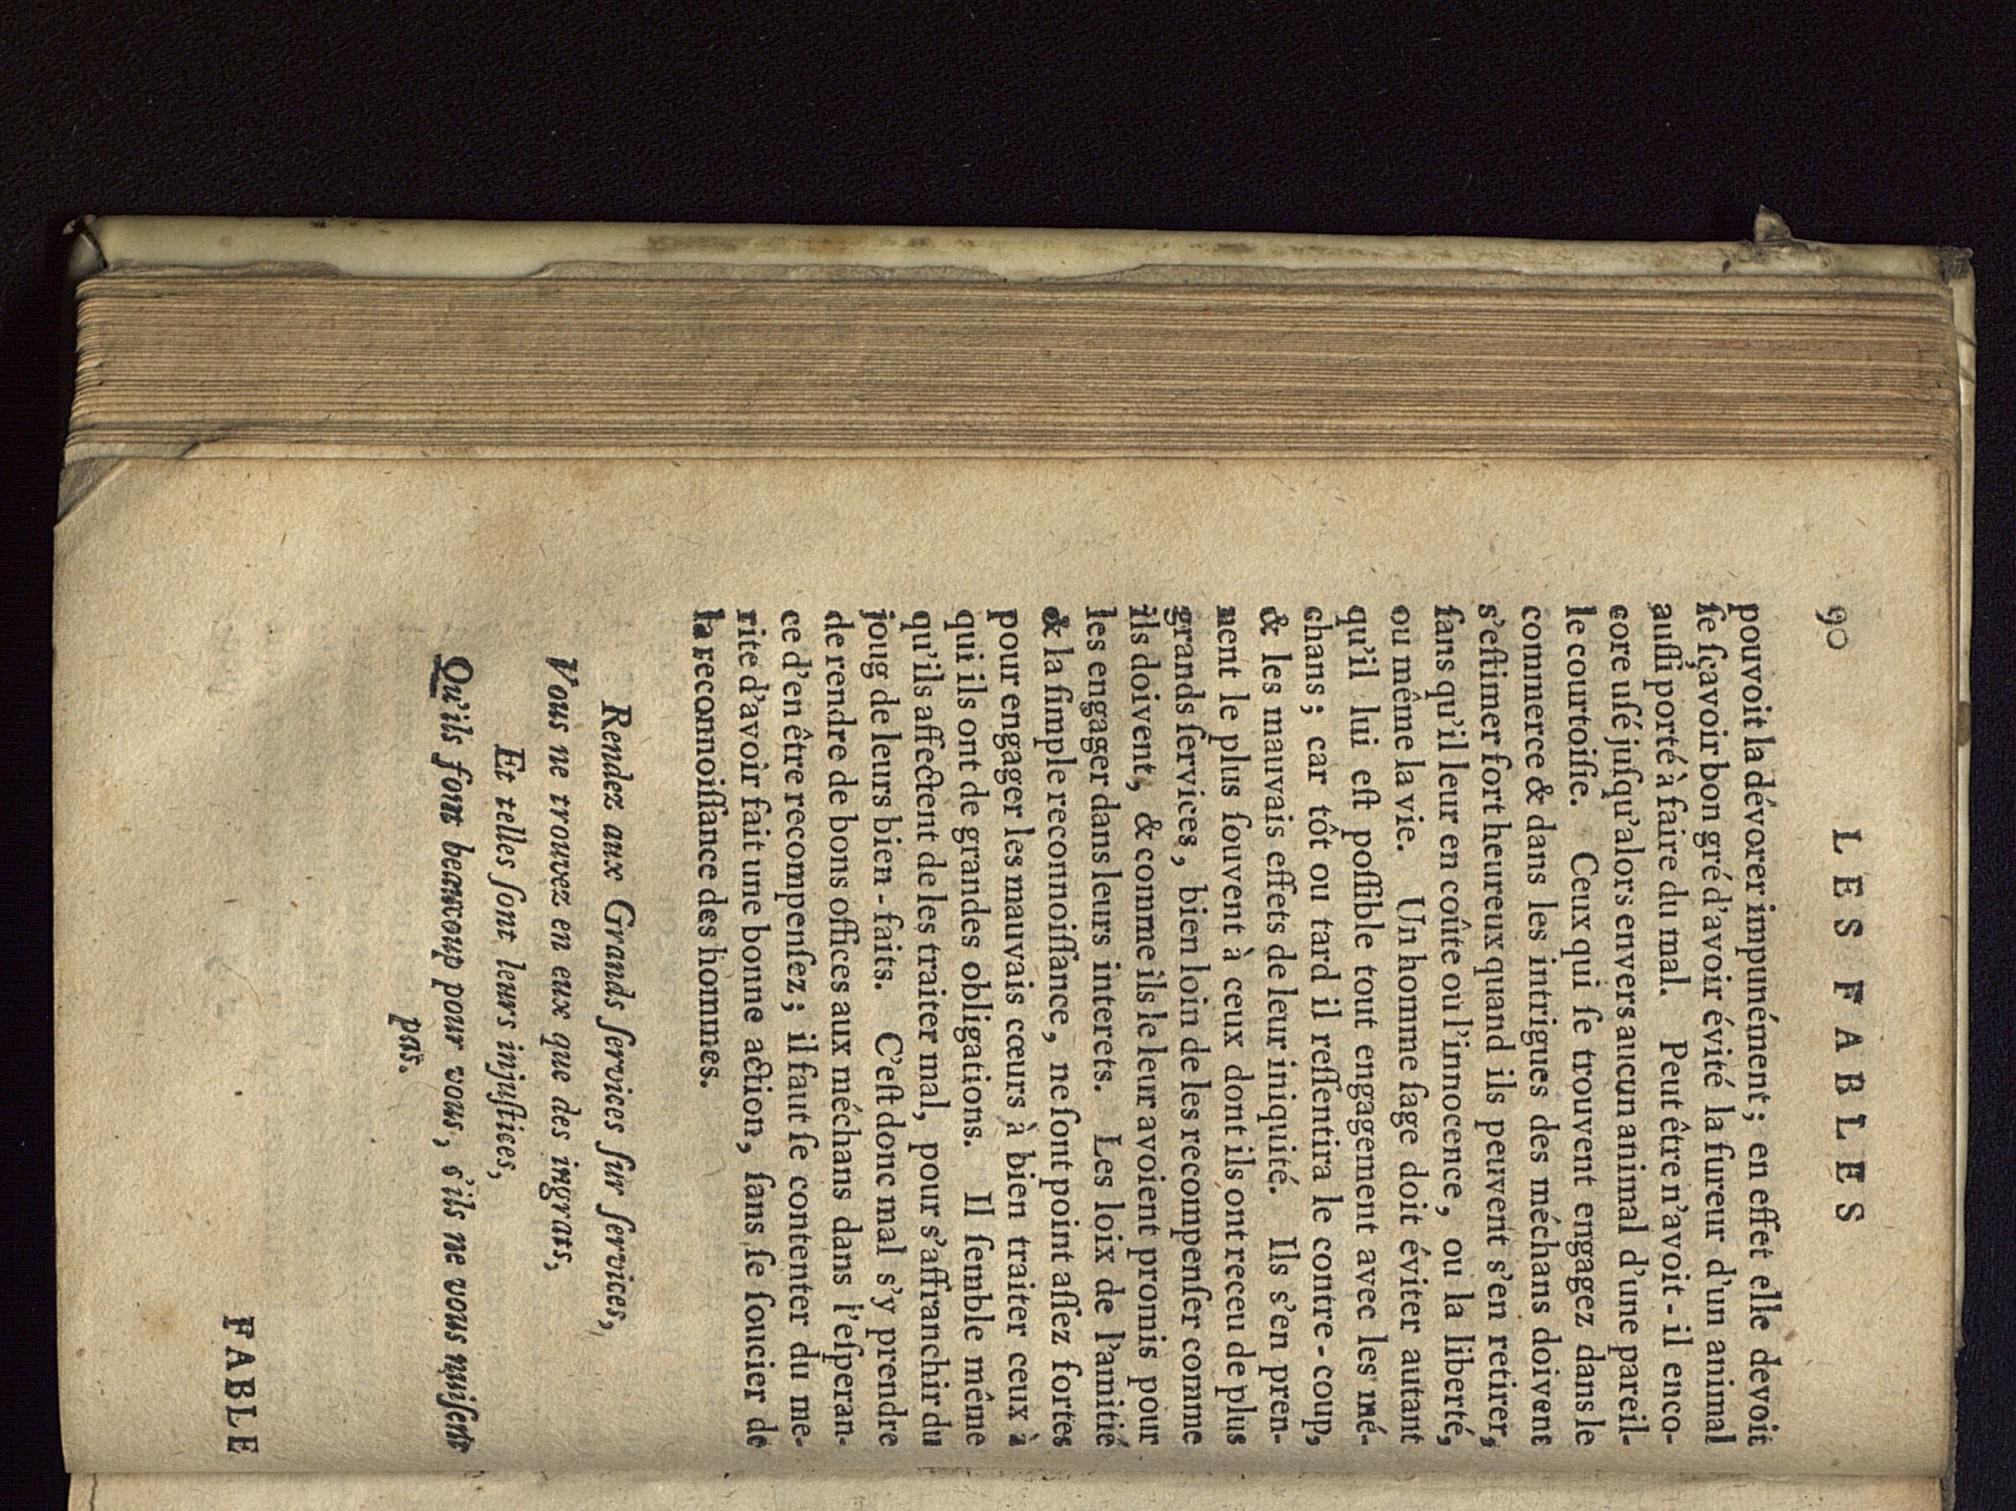 90 LES FABLES
pouvoit la dévorer impunément; en effet elle devoit
ſe ſçavoir bon gré d'avoir évité la fureur d'un animal
auſſi porté à faire du mal. Peut être n'avoit-il enco-
core uſé juſqu'alors envers aucun animal d'une pareil-
le courtoiſie. Ceux qui ſe trouvent engagez dans le
commerce & dans les intrigues des méchans doivent
s'eſtimer fort heureux quand ils peuvent s'en retirer,
ſans qu'il leur en coûte ou l'innocence, ou la liberté,
ou même la vie. Un homme ſage doit éviter autant
qu'il lui eſt poſſible tout engagement avec les mé-
chans; car tôt ou tard il reſſentira le contre-coup,
& les mauvais effets de leur iniquité. Ils s'en pren-
nent le plus ſouvent à ceux dont ils ont receu de plus
grands ſervices, bien loin de les recompenſer comme
ils doivent, & comme ils le leur avoient promis pour
les engager dans leurs interets. Les loix de l'amitié
& la ſimple reconnoiſſance, ne ſont point aſſez fortes
pour engager les mauvais cœurs à bien traiter ceux à
qui ils ont de grandes obligations. Il ſemble même
qu'ils affectent de les traiter mal, pour s'affranchir du
joug de leurs bien-faits. C'eſt donc mal s'y prendre
de rendre de bons offices aux méchans dans l'eſperan-
ce d'en être recompenſez; il faut ſe contenter du me-
rite d'avoir fait une bonne action, ſans ſe ſoucier de
la reconnoiſſance des hommes.
Rendez aux Grands ſervices ſur ſervices,
Vous ne trouvez en eux que des ingrats,
Et telles ſont leurs injuſtices,
Qu'ils font beaucoup pour vous, s'ils ne vous nuiſent
pas.
FABLE